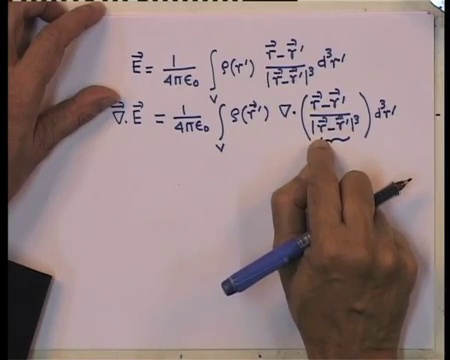 E⃗ = 1/4πε₀ ∫_V ρ(r') (r⃗ - r⃗')/|r⃗ - r⃗'|³ d³r'
∇⃗·E⃗ = 1/4πε₀ ∫_V ρ(r⃗') ∇·((r⃗ - r⃗')/|r⃗ - r⃗'|³) d³r'